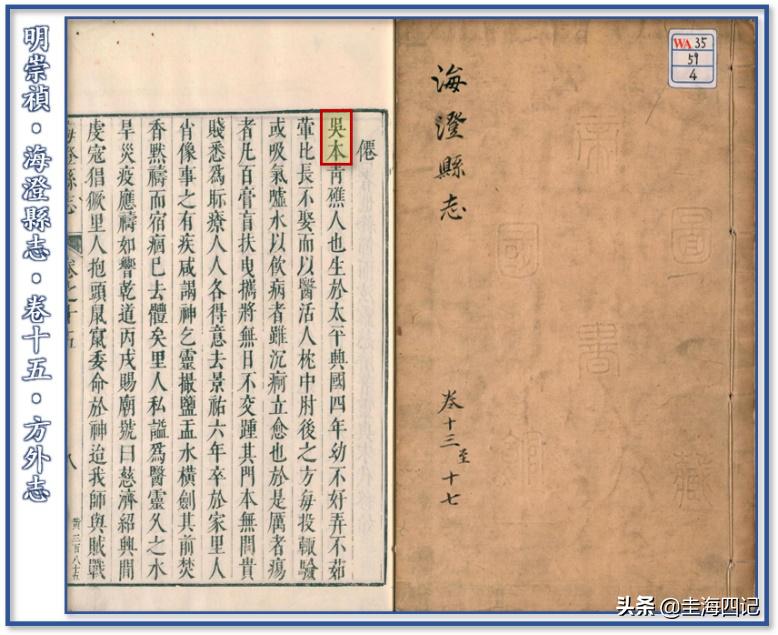 明崇禎·海澄縣志·卷十五·方外志
僊
吳木青礁人也生於太平興國四年幼不好弄不茹
葷比長不娶而以醫活人枕中肘後之方每投輙驗
或吸氣噓水以飲病者雖沉痾立愈也於是厲者瘍
者凡百膏肓扶曳攜將無日不交踵其門本無間貴
賤悉爲眎療人人各得意去景祐六年卒於家里人
肖像事之有疾咸謁神乞靈撮鹽盂水橫劍其前焚
香黙禱而宿痼巳去體矣里人私謚爲醫靈久之水
旱災疫應禱如響乾道丙戌賜廟號曰慈濟紹興間
虔寇猖獗里人抱頭鼠竄委命於神迨我師與賊戰
海澄縣志
卷之十五
八
海澄縣志
卷十三至十七
WA 35
59
4
头条 @圭海四记